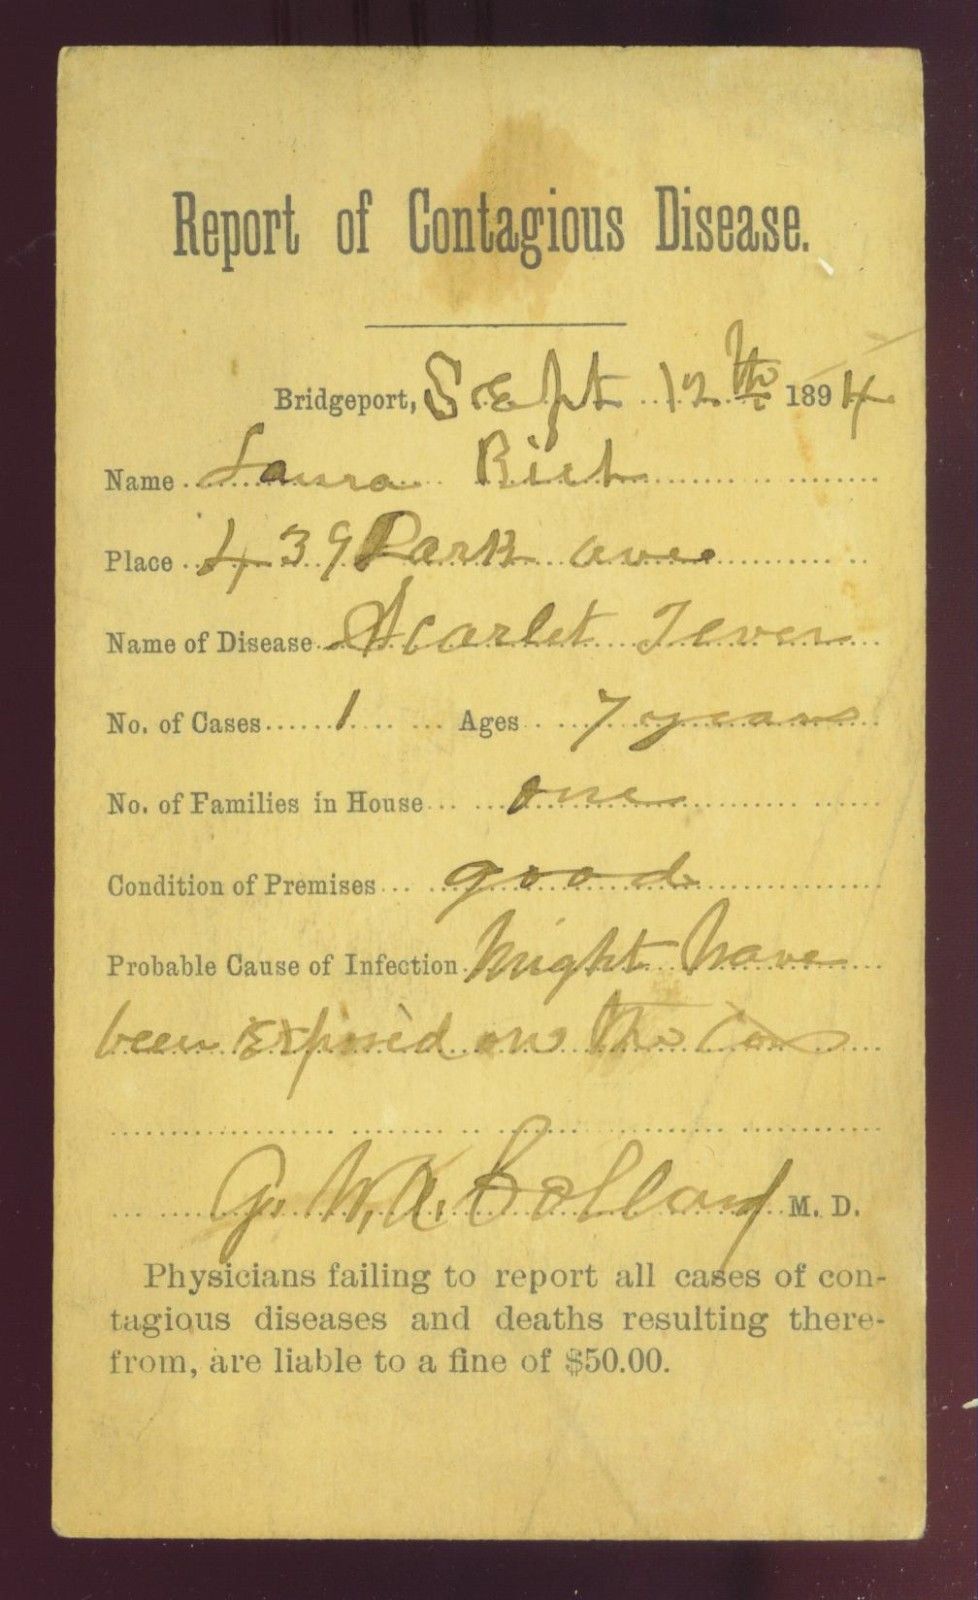 Report of Contagious Disease.
Bridgeport, Sept 12th 1894
Name Laura Rich
Place 439 Park ave
Name of Disease Scarlet Fever
No. of Cases 1 Ages 7 years
No. of Families in House one
Condition of Premises good
Probable Cause of Infection Might have
been exposed on the Cars
G. W. A. Colland M. D.
Physicians failing to report all cases of con-
tagious diseases and deaths resulting there-
from, are liable to a fine of $50.00.